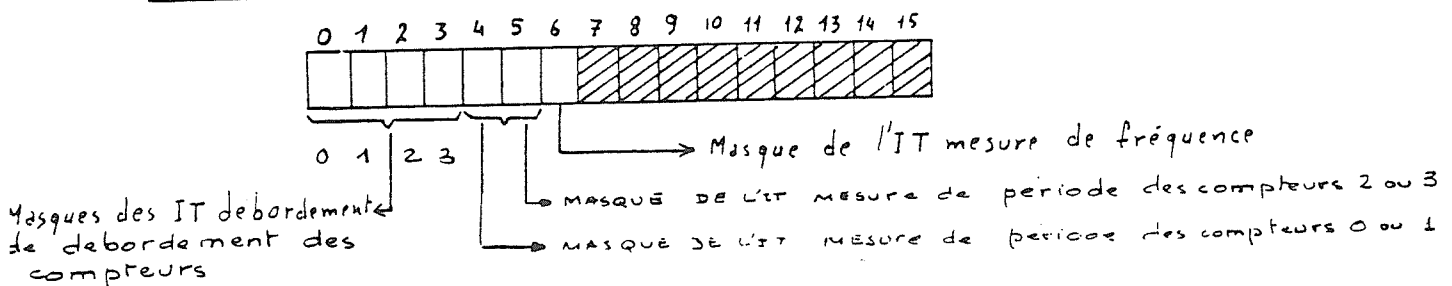 0 1 2 3 4 5 6 7 8 9 10 11 12 13 14 15
0 1 2 3
Masque de l'IT mesure de fréquence
MASQUE DE L'IT MESURE de periode des compteurs 2 ou 3
MASQUE DE L'IT MESURE de periode des compteurs 0 ou 1
Masques des IT debordement
de debordement des
compteurs